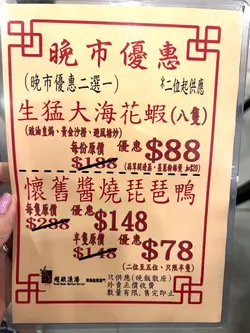 晚市優惠
(晚市優惠二選一) *二位起供應
生猛大海花蝦(八隻)
(豉油皇焗、黃金沙滑、避風塘炒)
每份原價 $188 優惠 $88
懷舊醬燒琵琶鴨
每隻原價 $288 優惠 $148
半隻原價 $148 優惠 $78
(二位至五位、只限半隻)
只供應(晚飯散席)
外賣正價收費
數量有限,售完即止